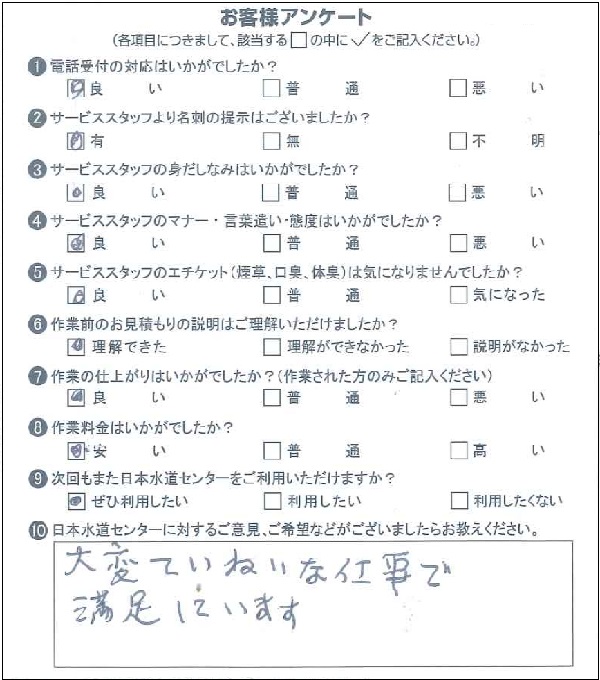 お客様アンケート
(各項目につきまして、該当する□の中に✓をご記入ください。)
❶電話受付の対応はいかがでしたか?
良い □普通 □悪い
❷サービススタッフより名刺の提示はございましたか?
有 □無 □不明
❸サービススタッフの身だしなみはいかがでしたか?
良い □普通 □悪い
❹サービススタッフのマナー・言葉遣い・態度はいかがでしたか?
良い □普通 □悪い
❺サービススタッフのエチケット(煙草、口臭、体臭)は気になりませんでしたか?
良い □普通 □気になった
❻作業前のお見積もりの説明はご理解いただけましたか?
理解できた □理解ができなかった □説明がなかった
❼作業の仕上がりはいかがでしたか?(作業された方のみご記入ください)
良い □普通 □悪い
❽作業料金はいかがでしたか?
安い □普通 □高い
❾次回もまた日本水道センターをご利用いただけますか?
ぜひ利用したい □利用したい □利用したくない
❿日本水道センターに対するご意見、ご希望などがございましたらお教えください。
大変ていねいな仕事で
満足しています